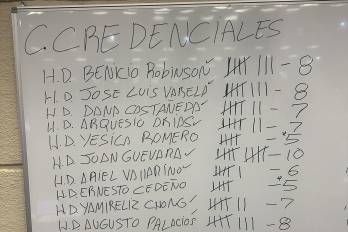 C. CREDENCIALES
H.D. BENICIO ROBINSON ✓ 𝍸 III - 8
H.D. JOSE LUIS VARELA ✓ 𝍸 III - 8
H.D. DANA CASTAÑEDA ✓ 𝍸 II - 7
H.D. ARQUESIO ARIAS ✓ 𝍸 II - 7
H.D. YESICA ROMERO 𝍸 - 5
H.D. JUAN GUEVARA ✓ 𝍸 𝍸 - 10
H.D. ARIEL VALLARINO ✓ 𝍸 I - 6
H.D. ERNESTO CEDEÑO 𝍸 - 5
H.D. YAMIRELIZ CHONG ✓ 𝍸 II - 7
H.D. AUGUSTO PALACIOS 𝍸 III - 8